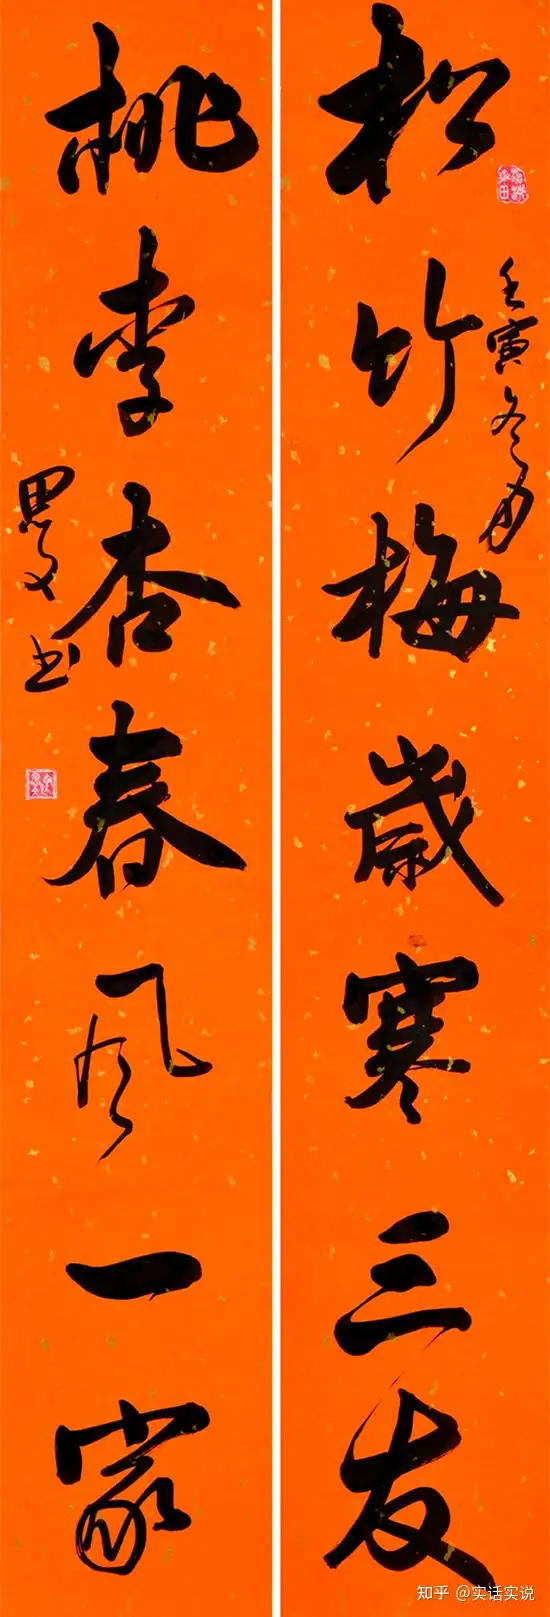 松竹梅歲寒三友
壬寅冬月
桃李杏春風一家
思文书
知乎 @实话实说